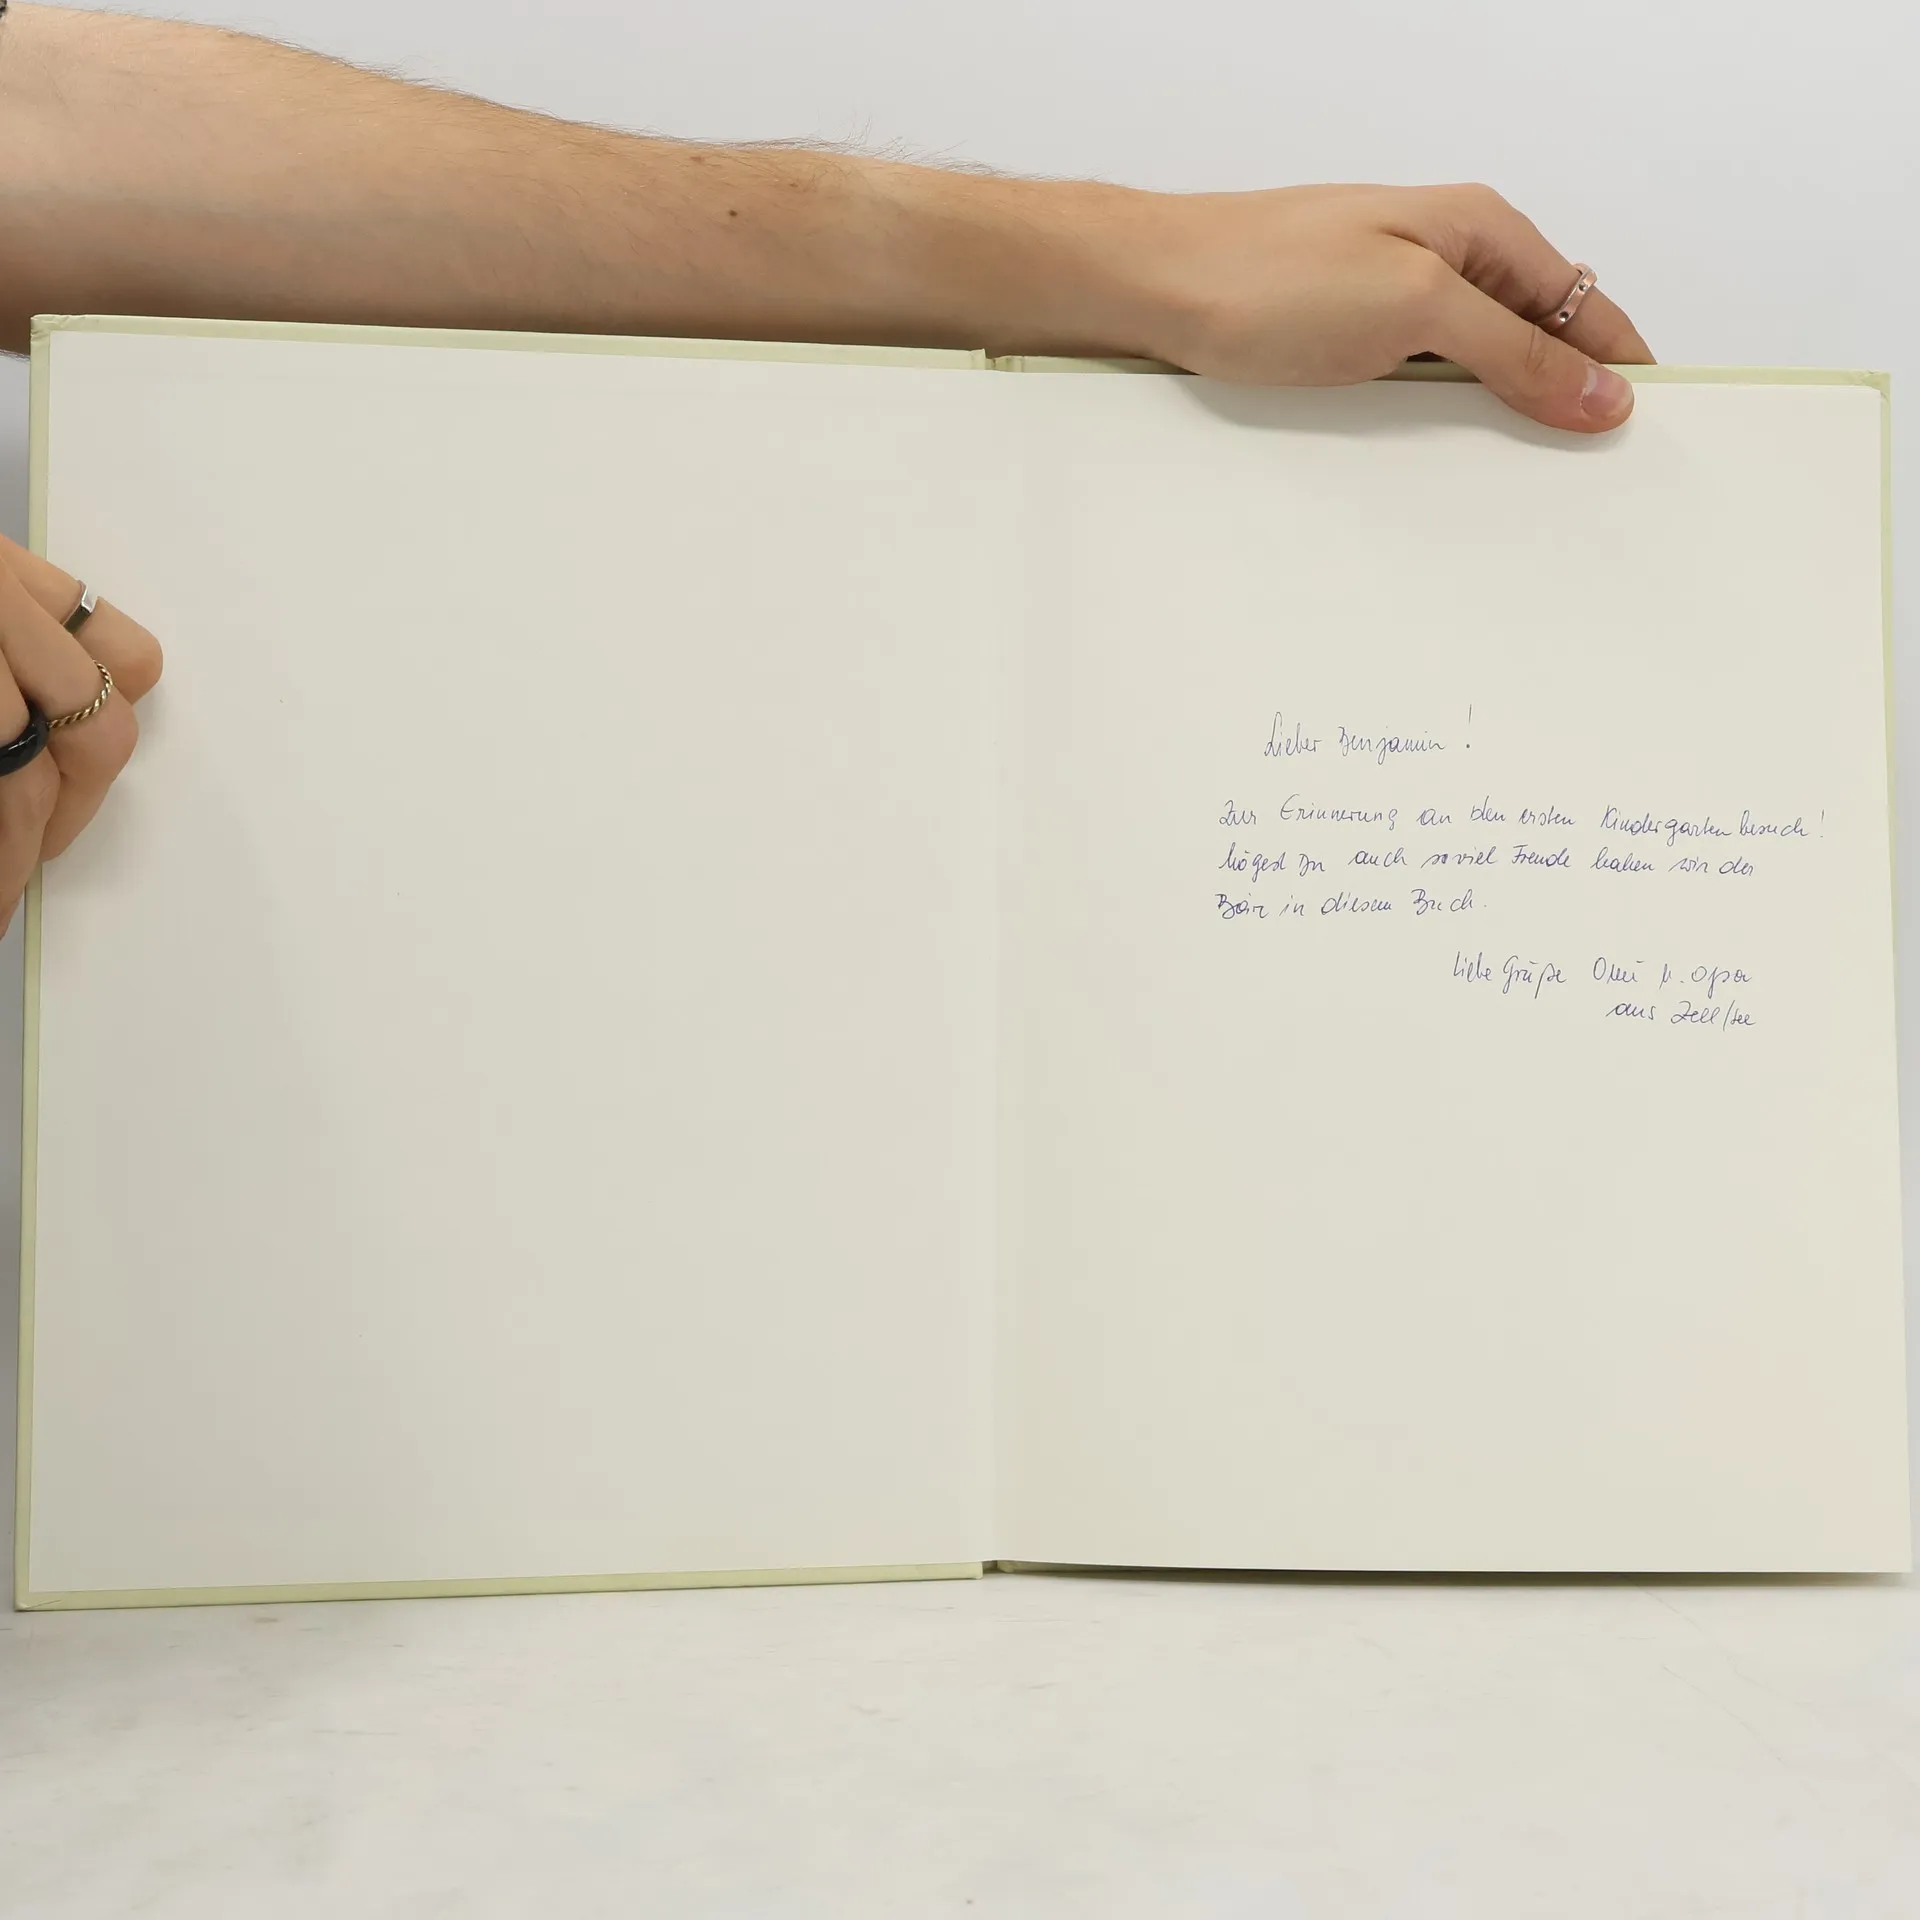 Lieber Benjamin !
Zur Erinnerung an den ersten Kindergartenbesuch!
Mögest Du auch soviel Freude haben wie der
Bär in diesem Buch.
Liebe Grüße Omi u. Opa
aus Zell/See